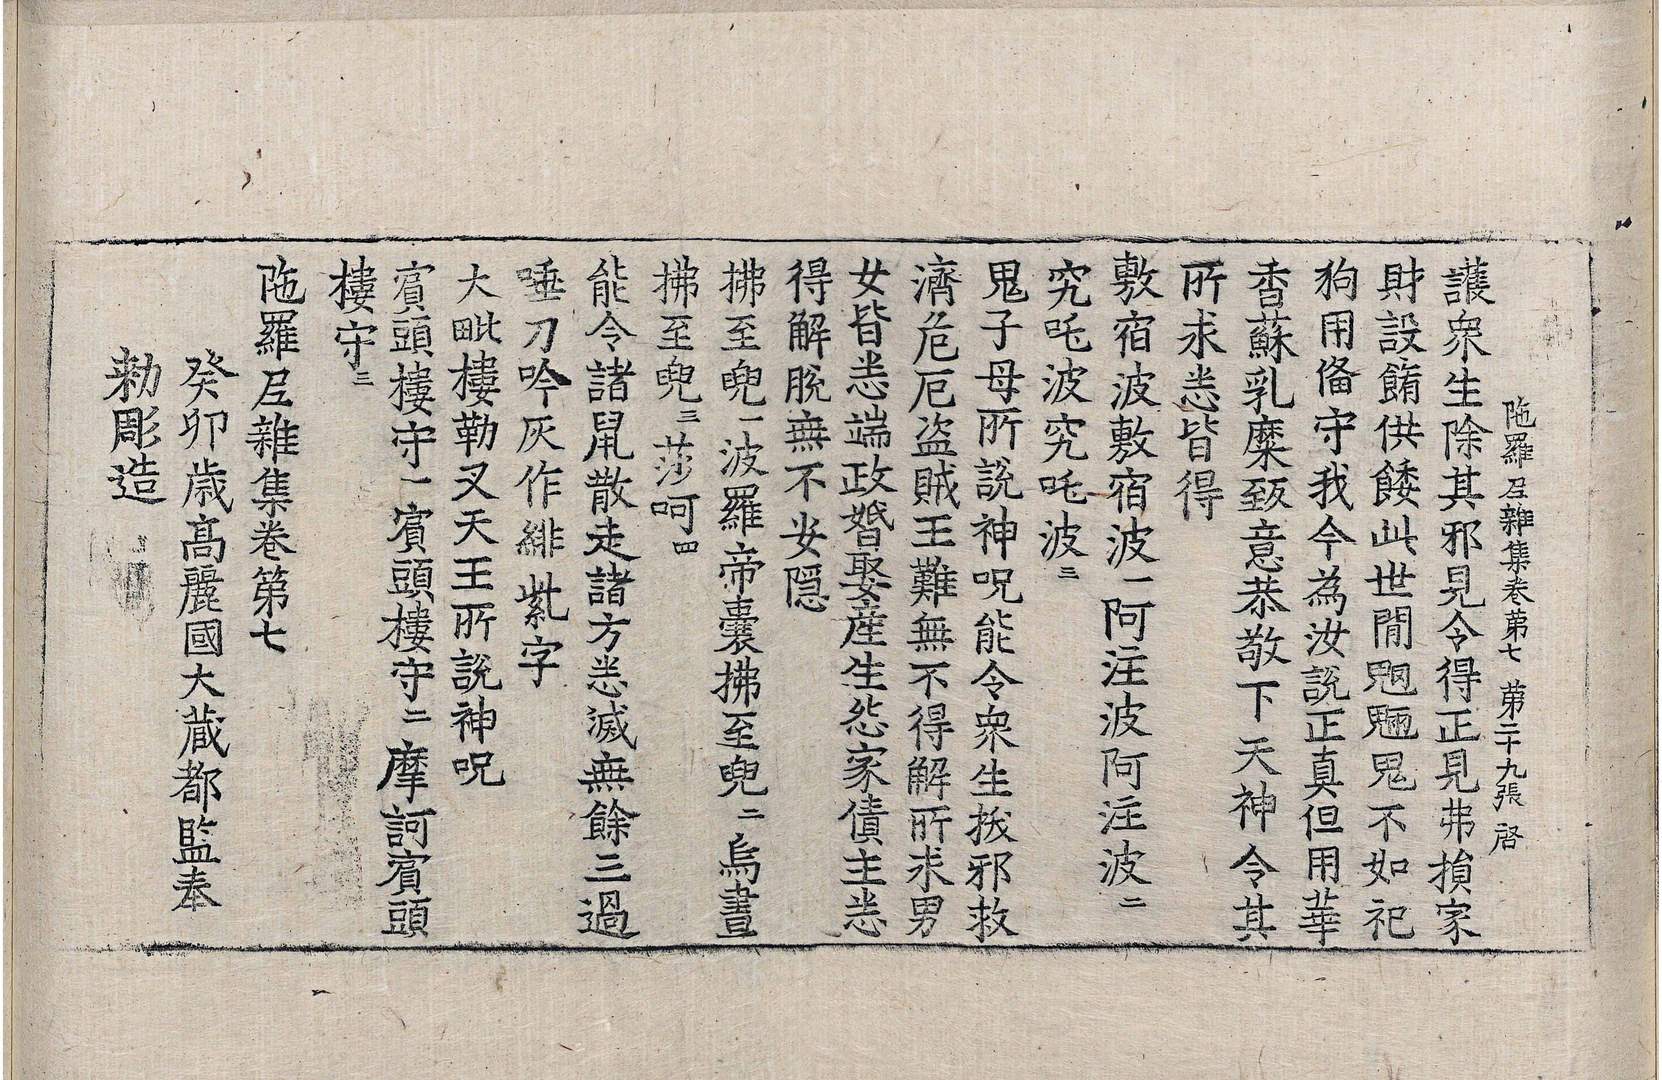 陁羅尼雜集卷第七 第二十九張 啓
護衆生除其邪見令得正見弗損家
財設餚供餧此世閒魍魎鬼不如祀
狗用俻守我今為汝說正真但用華
香蘇乳糜致意恭敬下天神令其
所求悉皆得
敷宿波敷宿波一阿注波阿注波二
究吒波究吒波三
鬼子母所說神呪能令衆生拔邪救
濟危厄盗賊王難無不得解所求男
女皆悉端政婚娶産生怨家債主悉
得解脫無不安隱
拂至睨一波羅帝囊拂至睨二烏晝
拂至睨三莎呵四
能令諸鼠散走諸方悉滅無餘三過
唾刀吟灰作緋紫字
大毗樓勒叉天王所說神呪
賔頭樓守一賔頭樓守二摩訶賔頭
樓守三
陁羅尼雜集卷第七
癸卯歲高麗國大藏都監奉
勅彫造